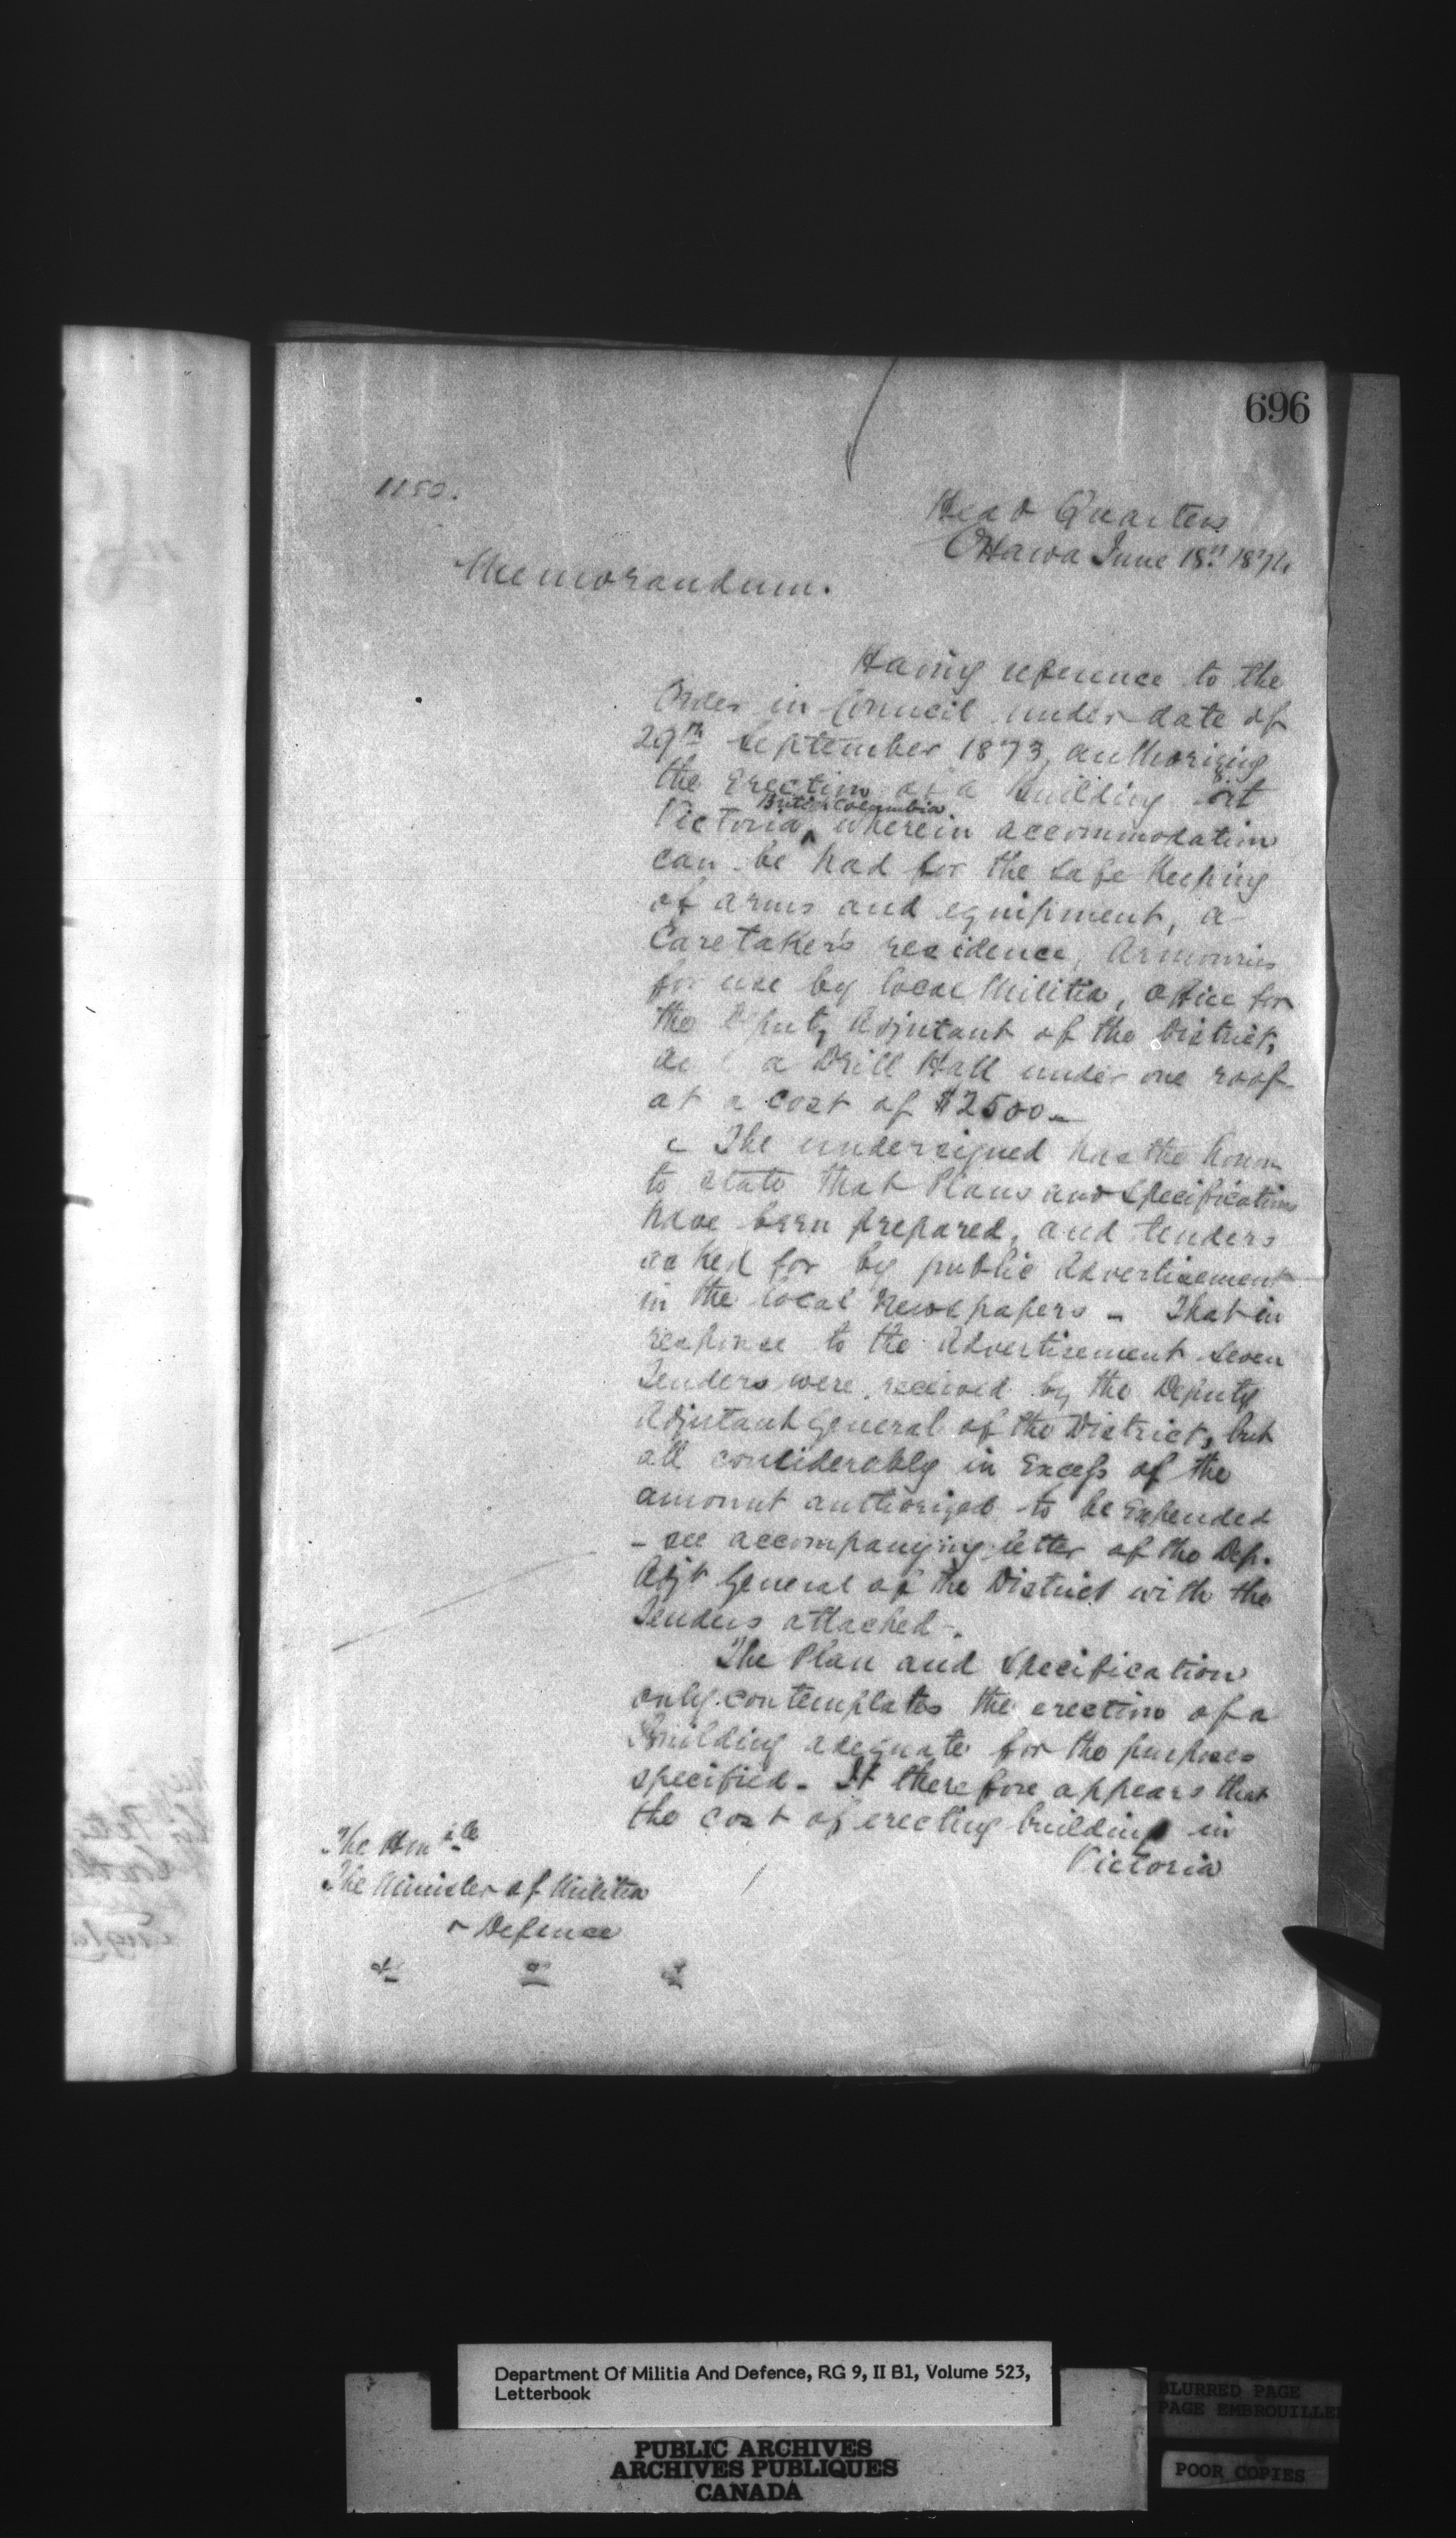 696
1150.
Head Quarters
Ottawa June 18th 1874
Memorandum.
Having reference to the
Order in Council under date of
29th September 1873, authorizing
the Erection of a Building at
British Columbia
Victoria, wherein accommodation
can be had for the safe Keeping
of arms and equipment, a
Caretaker's residence, Armouries
for use by local Militia, Office for
the Deputy Adjutant of the District,
a Drill Hall under one roof
at a cost of $2500_
The undersigned has the honor
to state that Plans and Specifications
have been prepared, and tenders
asked for by public Advertisement
in the local Newspapers _ That in
response to the Advertisement seven
Tenders were received by the Deputy
Adjutant General of the District, but
all considerably in Excess of the
amount authorized to be Expended
_ see accompanying letter of the Dep.
Adjt General of the District with the
Tenders attached _.
The Plan and Specification
only contemplates the erection of a
Building adequate for the purposes
specified _ It therefore appears that
the cost of erecting building in
Victoria
The Honble
The Minister of Militia
Defence
Department Of Militia And Defence, RG 9, II B1, Volume 523,
Letterbook
PUBLIC ARCHIVES
ARCHIVES PUBLIQUES
CANADA
BLURRED PAGE
PAGE EMBROUILLEE
POOR COPIES